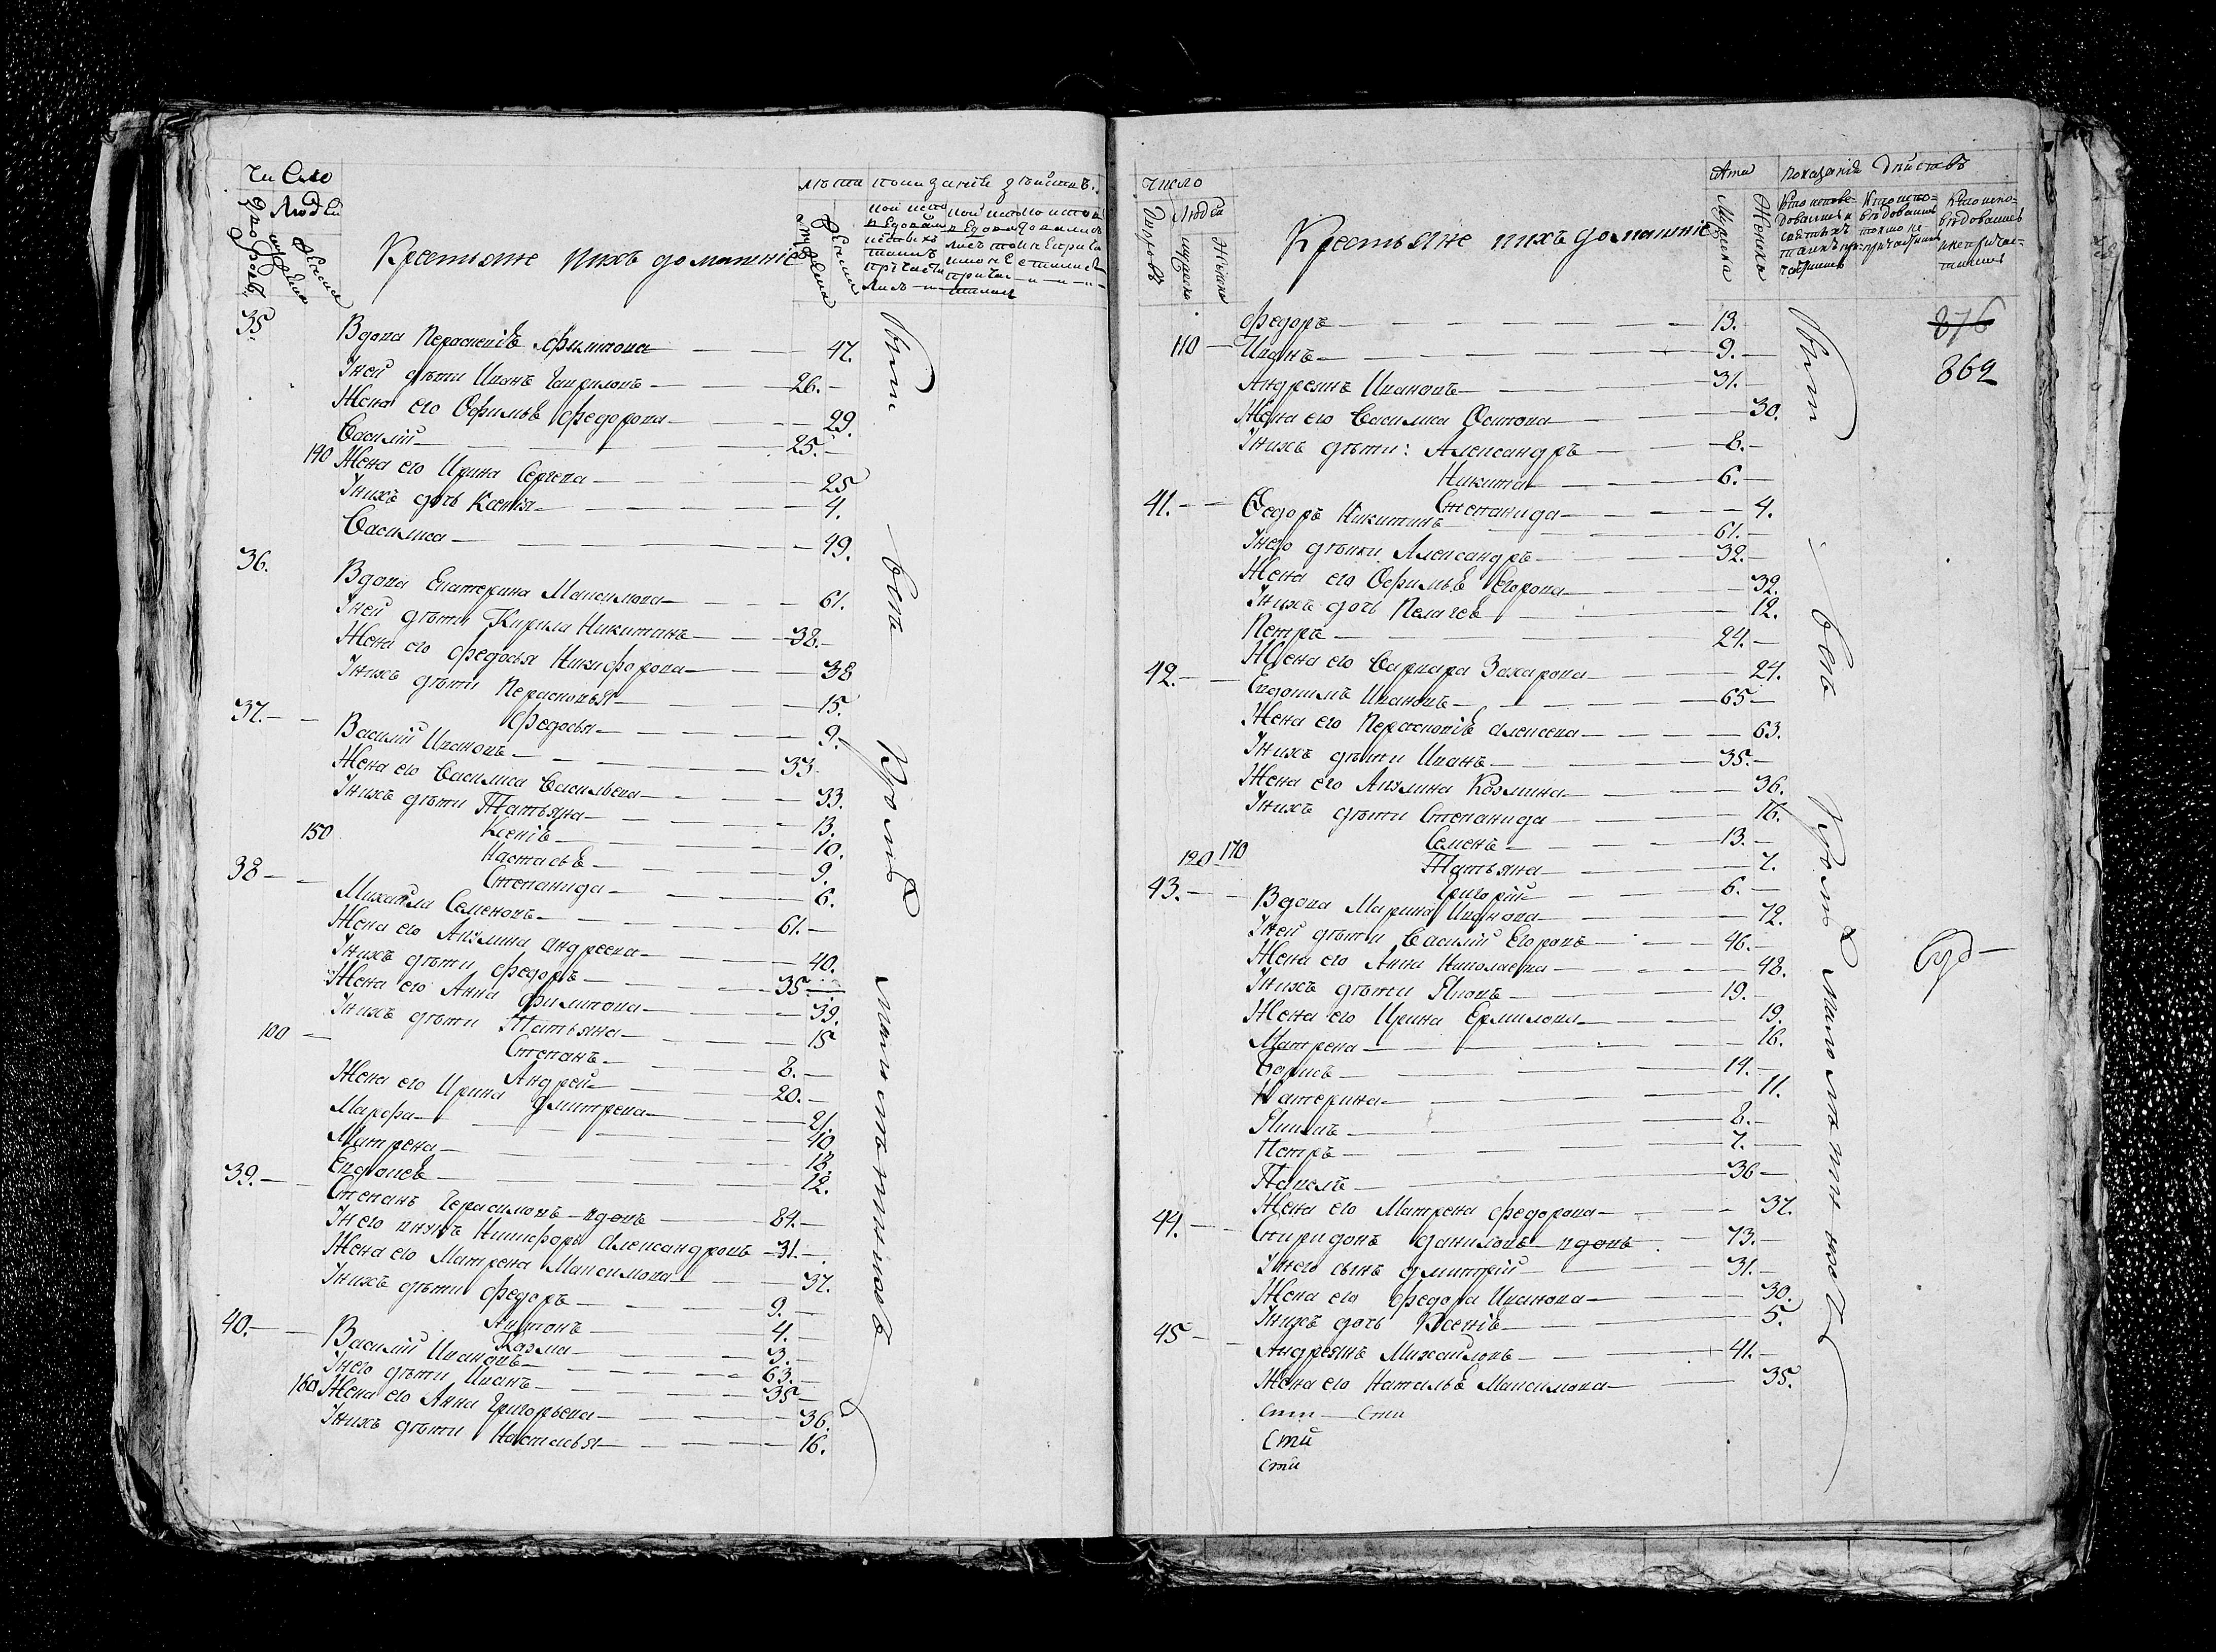 Число
Людей
Дворовъ
мужеска
женска
Крестьяне ихъ домашніе
лѣта показаніе дѣйствъ.
35.
Вдова Парасковія Филипова — 47.
У ней дѣти Иванъ Гавриловъ — 26.
Жена его Офимья Федорова — 29.
Василій — 25.
140 Жена его Ирина Сергеева — 25
У нихъ дочь Ксенія — 4.
Василиса — 49.
36. Вдова Екатерина Максимова — 61.
У ней дѣти Кирила Никитинъ — 38.
Жена его Федосья Никифорова — 38
У нихъ дѣти Парасковья — 15.
Федосья — 9.
37. Василій Ивановъ — 33.
Жена его Василиса Васильева — 33.
У нихъ дѣти Татьяна — 13.
150 Ксенія — 10.
Настасья — 9.
Степанида — 6.
38 Михайла Семеновъ — 61.
Жена его Акулина Андреева — 40.
У нихъ дѣти Федоръ — 35
Жена его Анна Филипова — 39.
У нихъ дѣти Татьяна — 15
100 — Степанъ — 8.
Андрей — 20.
Жена его Ирина Дмитрева — 21.
Марфа — 40
Матрена — 18.
Евдокея — 12.
39. Степанъ Герасимовъ вдовъ — 84.
У него внукъ Никифоръ Александровъ — 31.
Жена его Матрена Максимова — 37.
У нихъ дѣти Федоръ — 9.
Антонъ — 4.
Казма — 3.
40. Василій Ивановъ — 63.
У него дѣти Иванъ — 35
160 Жена его Анна Григорьева — 36
У нихъ дѣти Настасья — 16.
Были вси кромѣ малолѣтнихъ
Число
Людей
Дворовъ
мужеска
Женска
Крестьяне ихъ домашніе
Лѣта
Мужеска
Женска
показанія дѣйствъ
Кто исповедовались и святыхъ таинъ причастились
Кто исповѣдовались токмо не причастились
Кто исповѣдовались и не причастились
Федоръ — 13.
876
110 — Иванъ — 9.
862
Андреянъ Ивановъ — 31.
Жена его Василиса Осипова — 30.
У нихъ дѣти: Александръ — 8.
Никита — 6.
Степанида — 4.
41. Федоръ Никитинъ — 61.
У него дѣти Александръ — 32.
Жена его Офимья Егорова — 32.
У нихъ дочь Пелагея — 12.
Петръ — 24.
Жена его Варвара Захарова — 24.
42. Евдокимъ Ивановъ — 65
Жена его Парасковія Алексева — 63.
У нихъ дѣти Иванъ — 35.
Жена его Акулина Козмина — 36.
У нихъ дѣти Степанида — 16.
Семенъ — 13.
120 170 Татьяна — 7.
Григорій — 6.
43. Вдова Марина Иванова — 72.
У ней дѣти Василій Егоровъ — 46.
Жена его Анна Николаевна — 48.
У нихъ дѣти Яковъ — 19.
Жена его Ирина Ермилова — 19.
Матрена — 16.
Борисъ — 14.
Катерина — 11.
Якимъ — 8.
Петръ — 7.
Павелъ — 36
Жена его Матрена Федорова — 37.
44. Спиридонъ Даниловъ вдовъ — 73.
У него сынъ Дмитрій — 31.
Жена его Федора Иванова — 30.
У нихъ дочь Ксенія — 5.
45 Андреянъ Михайловъ — 41.
Жена его Наталья Максимова — 35.
Были вси кромѣ малолѣтнихъ